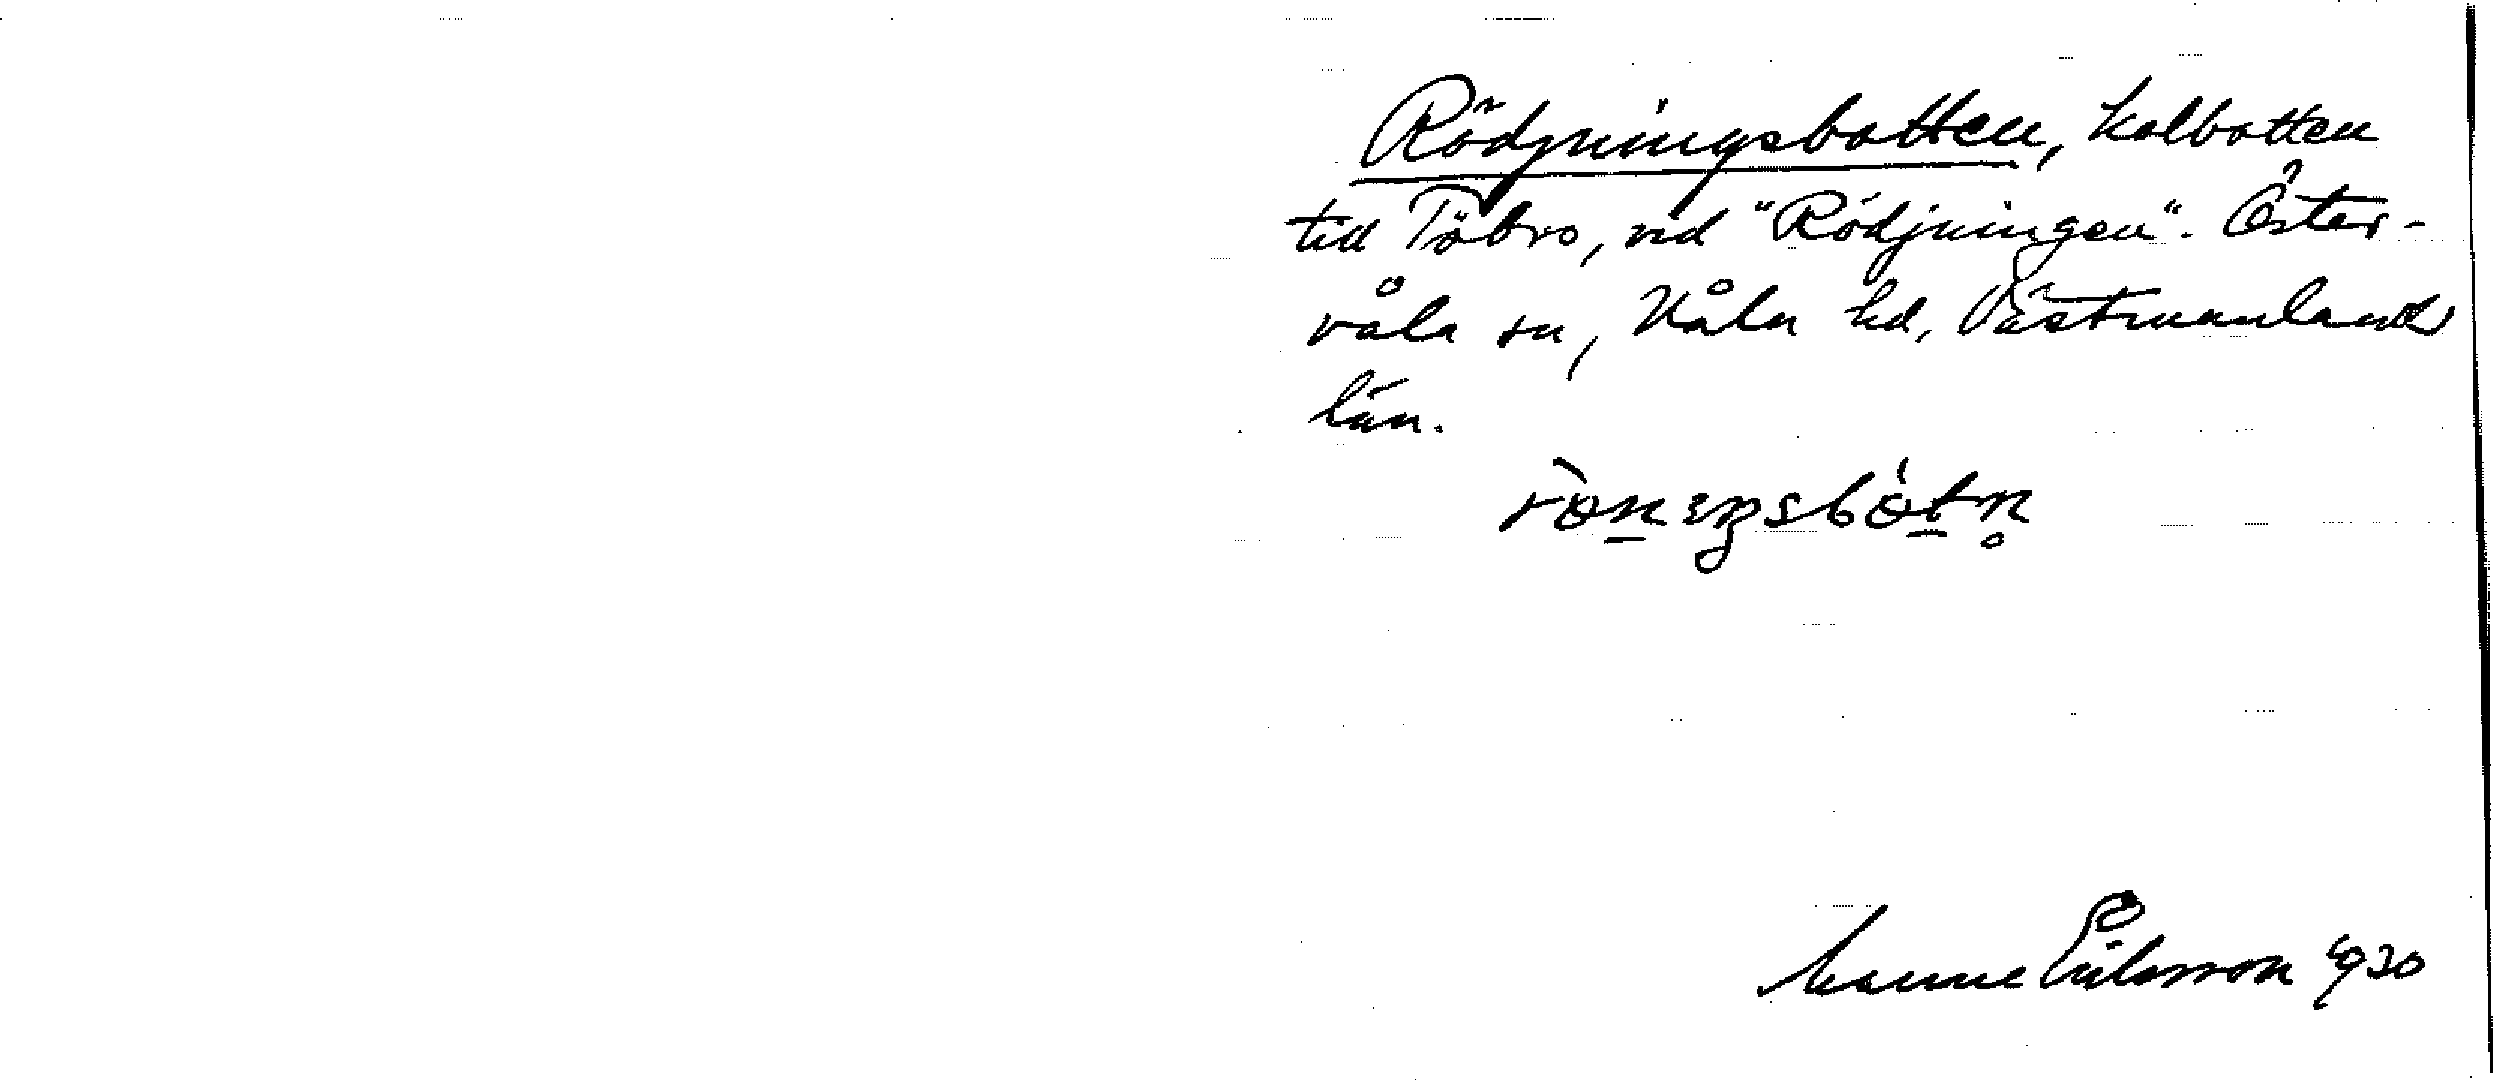 Rödjningsbotten, kolbotten
till Töbro, vid "Rödjningen". Öster-
våla sn, Våla hd, Västmanlands
län.
rönɩŋsbötn̥
Manne Eriksson 1930